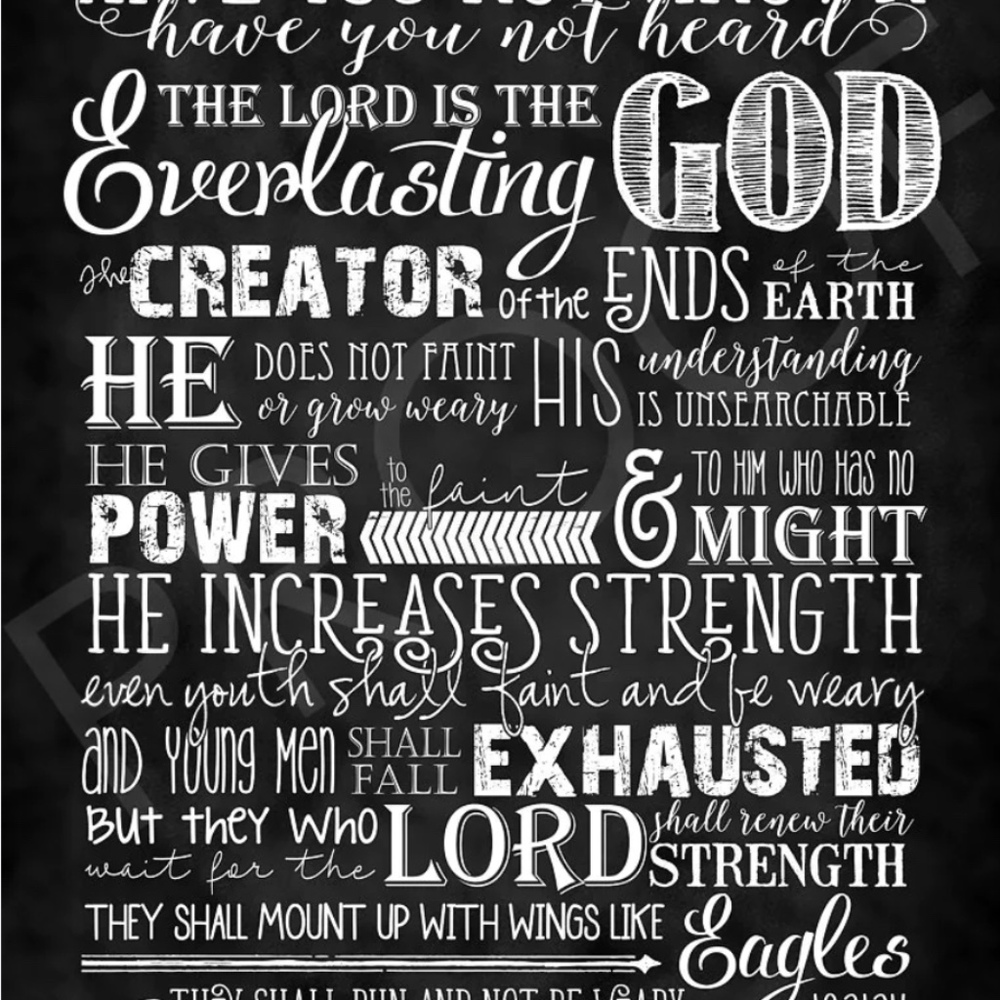 HAVE YOU NOT KNOWN
have you not heard
THE LORD IS THE
Everlasting GOD
the CREATOR of the ENDS of the EARTH
HE DOES NOT FAINT
or grow weary
HIS understanding
IS UNSEARCHABLE
HE GIVES
POWER
to the faint
& TO HIM WHO HAS NO
MIGHT
HE INCREASES STRENGTH
even youth shall faint and be weary
AND YOUNG MEN SHALL FALL EXHAUSTED
BUT THEY WHO
wait for the
LORD
shall renew their
STRENGTH
THEY SHALL MOUNT UP WITH WINGS LIKE
Eagles
THEY SHALL RUN AND NOT BE WEARY
ISAIAH
PROOF